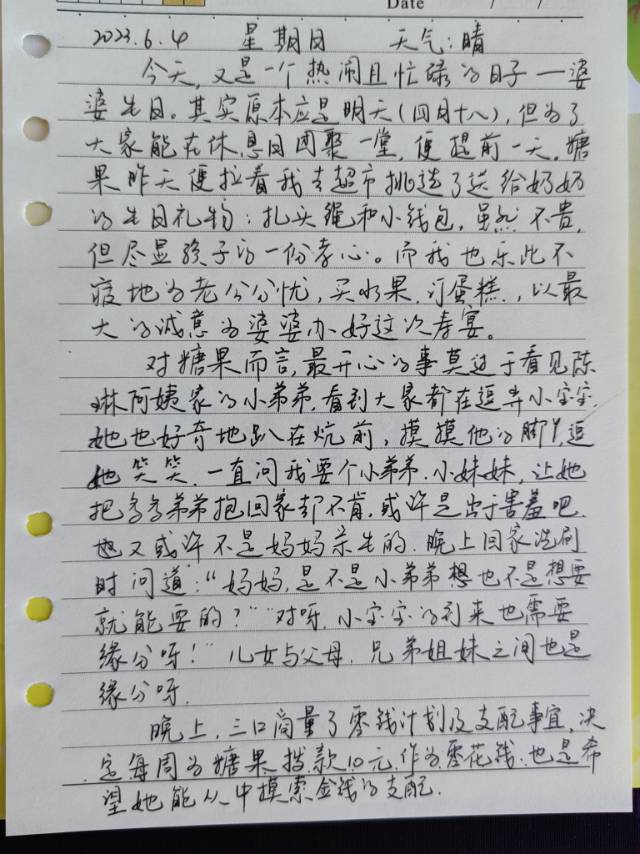 Date / /
2023.6.4 星期日 天气:晴
今天,又是一个热闹且忙碌的日子—婆
婆生日。其实原本应是明天(四月十八),但为了
大家能在休息日团聚一堂,便提前一天。糖
果昨天便拉着我去超市挑选了送给奶奶
的生日礼物:扎头绳和小钱包,虽然不贵,
但尽显孩子的一份孝心。而我也乐此不
疲地为老公分忧,买水果,订蛋糕,以最
大的诚意为婆婆办好这次寿宴。
对糖果而言,最开心的事莫过于看见陈
琳阿姨家的小弟弟,看到大家都在逗弄小宝宝,
她也好奇地趴在炕前,摸摸他的脚丫,逗
他笑笑,一直问我要个小弟弟、小妹妹,让她
把多多弟弟抱回家却不肯,或许是出于害羞吧,
也又或许不是妈妈亲生的,晚上回家洗刷
时问道:“妈妈,是不是小弟弟想也不是想要
就能要的?”“对呀,小宝宝的到来也需要
缘分呀!”儿女与父母,兄弟姐妹之间也是
缘分呀.
晚上,三口商量了零钱计划及支配事宜,决
定每周为糖果拨款10元,作为零花钱.也是希
望她能从中摸索金钱的支配.